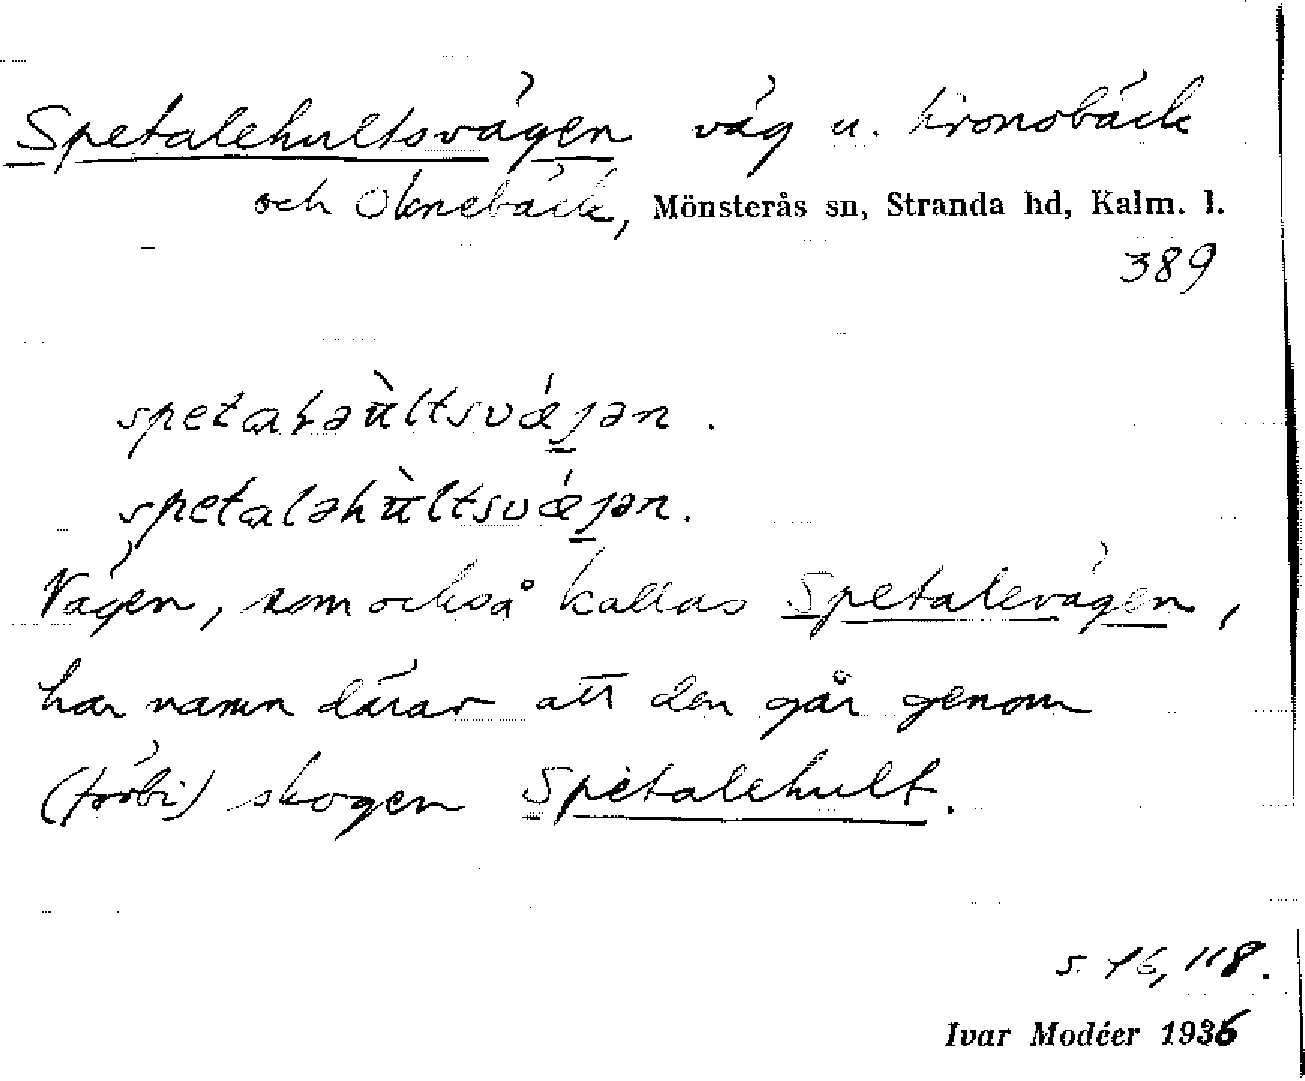 Spetalehultsvägen väg u. Kronobäck
och Oknebäck, Mönsterås sn, Stranda hd, Kalm. l.
389
spetaləu̇̀ltsvǽjən.
spetaləhu̇̀ltsvǽjən.
Vägen, som också kallas Spetalevägen,
har namn därav att den går genom
(förbi) skogen Spetalehult.
s. 16, 118.
Ivar Modéer 1936